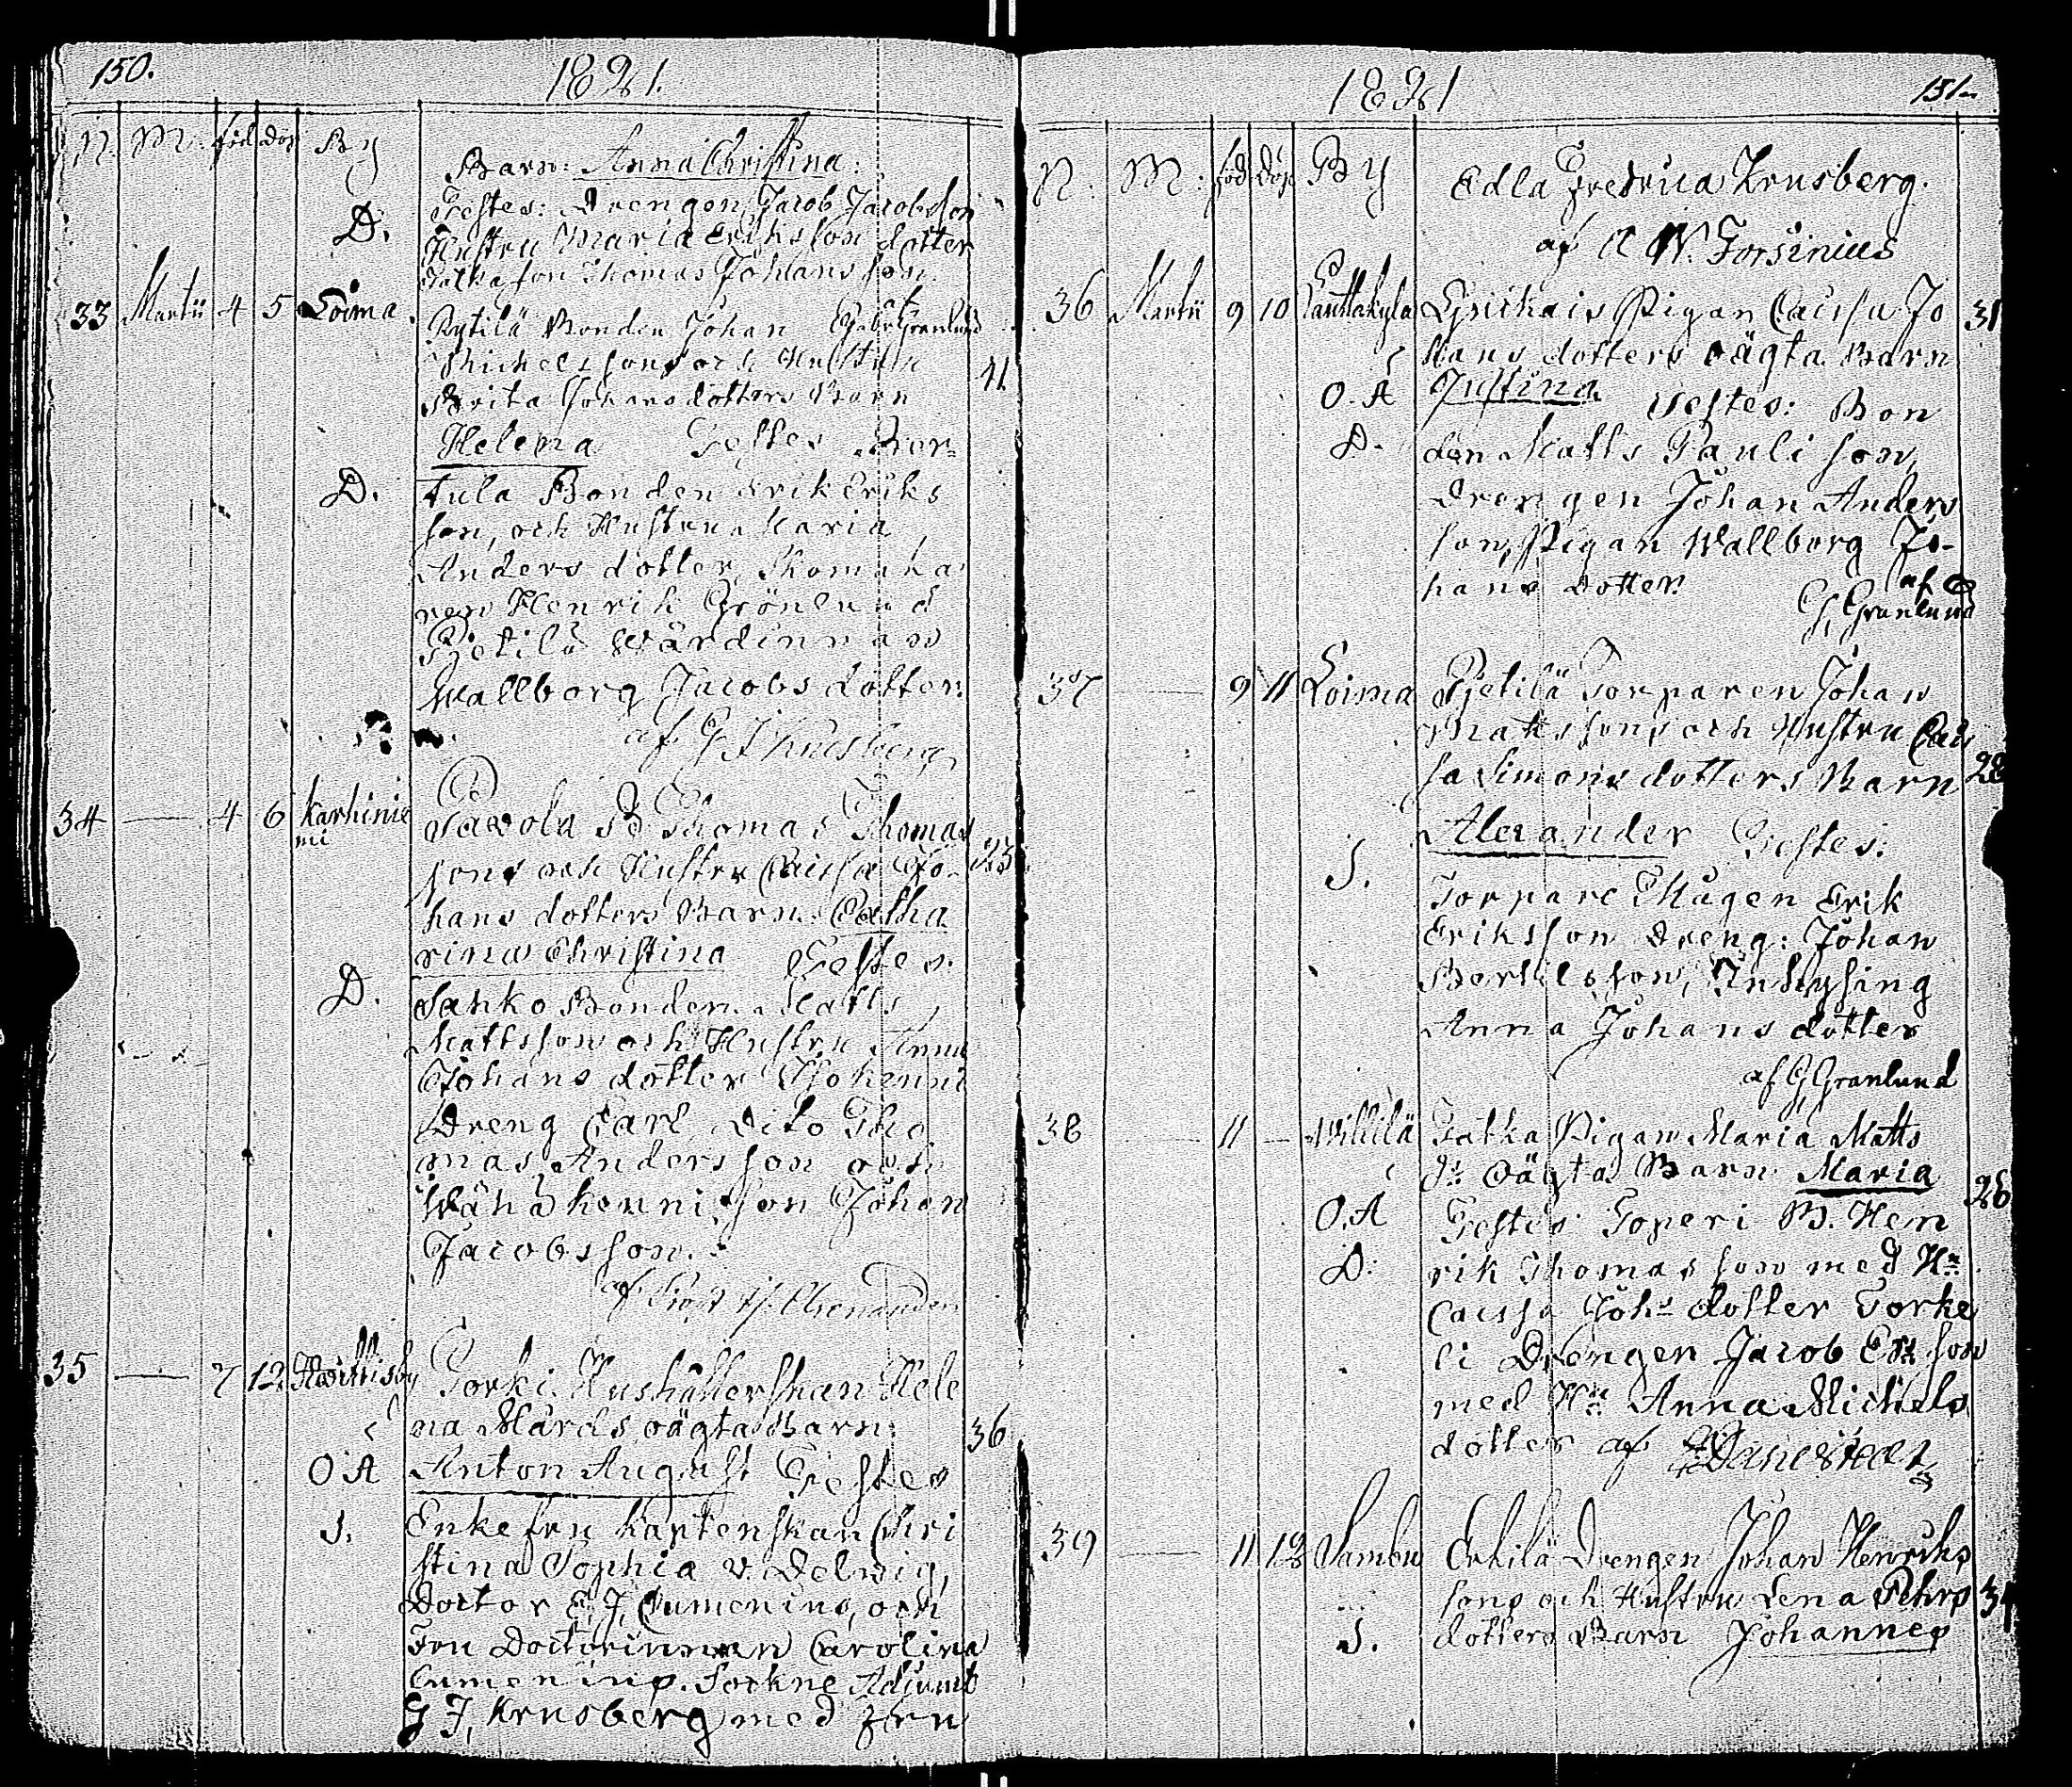 150.
1821.
N. M. föd döp By
Barn: Anna Christina.
D. Testes: Drengen Jacob Jacobsson
Hustru Maria Eriksson dotter
Talka son Thomas Johansson.
af Gabr Granlund
33 Martii 4 5 Loima. Kytilä Bonden Johan
Michelssons och Hustru
Brita Johansdotters Barn 41
Helena Testes
D. tula Bonden Erik Eriks
son, och Hustru Maria
Anders dotter, Skomaka
ren Henrik Grönlund
wärdinnan
Wallborg Jacobs dotter.
af G J Krusberg
34 — 4 6 Karhinie
mi
Pavola B. Thomas Thomas
sons och Hustru Caissa Jo-
hans dotters Barn Catha
rina Christina Testes.
D. Sanko Bonden Matts
Mattsson och Hustru Anna
Johans dotter
Dreng Carl, Dito Tho
mas Andersson och
Wähä kouni son Johan
Jacobsson.
35 — 7 12 Huittisby Torki Hushållerskan Hele
na Mårds oägta Barn: 36
O Ä Anton August Testes
S. Enkefru Kaptenskan Chri
stina Sophia v. Delwig,
Doctor E J Cumenius, och
Fru Doctorinnan Carolina
Cumenius. Sockne Adjunct
G J, Krusberg med Fru
1821
151
N. M: föd döp By
Edla Fredrica Krusberg.
af A W. Forsinius
36 Martii 9 10 Lauttakyla Pigan Caissa Jo
hans dotters oägta Barn 31
O. Ä Justina Testes: Bon
D. den Matts Pauli son,
Drengen Johan Anders
son, Pigan Wallborg Jo-
hans dotter. af
G, Granlund
37 — 9 11 Loima Torparen Johan
Matssons och Hustru Cais
sa Simons dotters Barn 28
Alexander Testes:
S. Torpare Mågen Erik
Eriksson Dreng: Johan
Bertilsson, Inhysing
Anna Johans dotter
af G, Granlund
38 — 11 — Willilä Talka Pigan Maria Matts
dr oägta Barn Maria 26
O. Ä Testes Toperi B. Hen
D: rik Thomasson med Hu
Caissa Johs dotter Torke
li Drengen Jacob Er: son
med Hu Anna Michels
dotter af
39 — 11 12 Sammu Erkilä Drengen Johan Henriks
sons och Hustru Lena Pehrs 31
S. dotters Barn Johannes